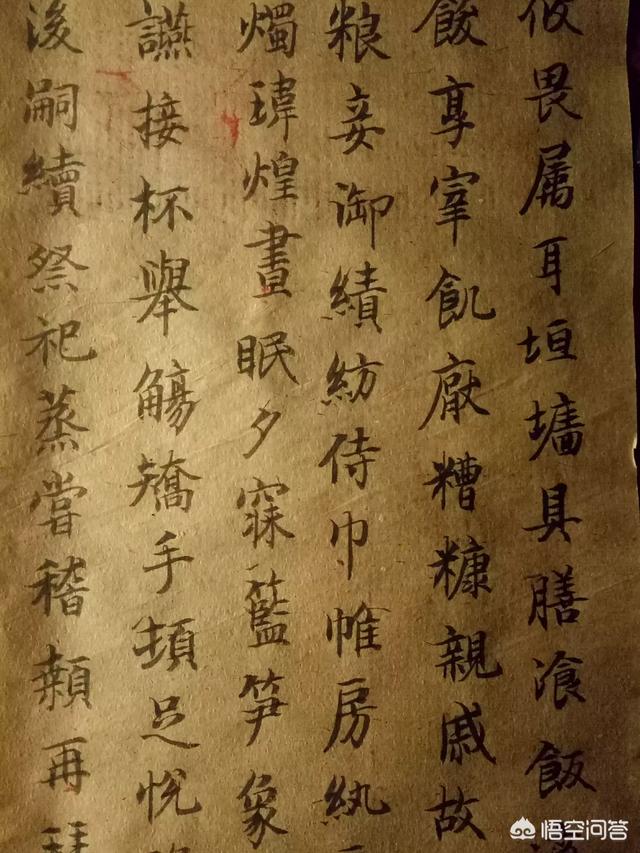 攸畏属耳垣墻具膳飡飯
飫享宰飢厭糟糠親戚故
粮妾御績紡侍巾帷房紈
燭瑋煌晝眠夕寐籃笋象
讌接杯舉觴矯手頓足悅
後嗣續祭祀蒸甞稽顙再
悟空问答